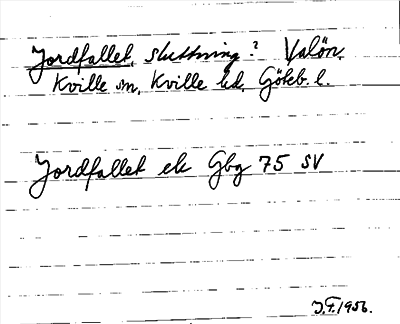 Jordfallet, sluttning? Valön,
Kville sn, Kville hd, Göteb. l.
Jordfallet ek Gbg 75 SV
J.F. 1956.